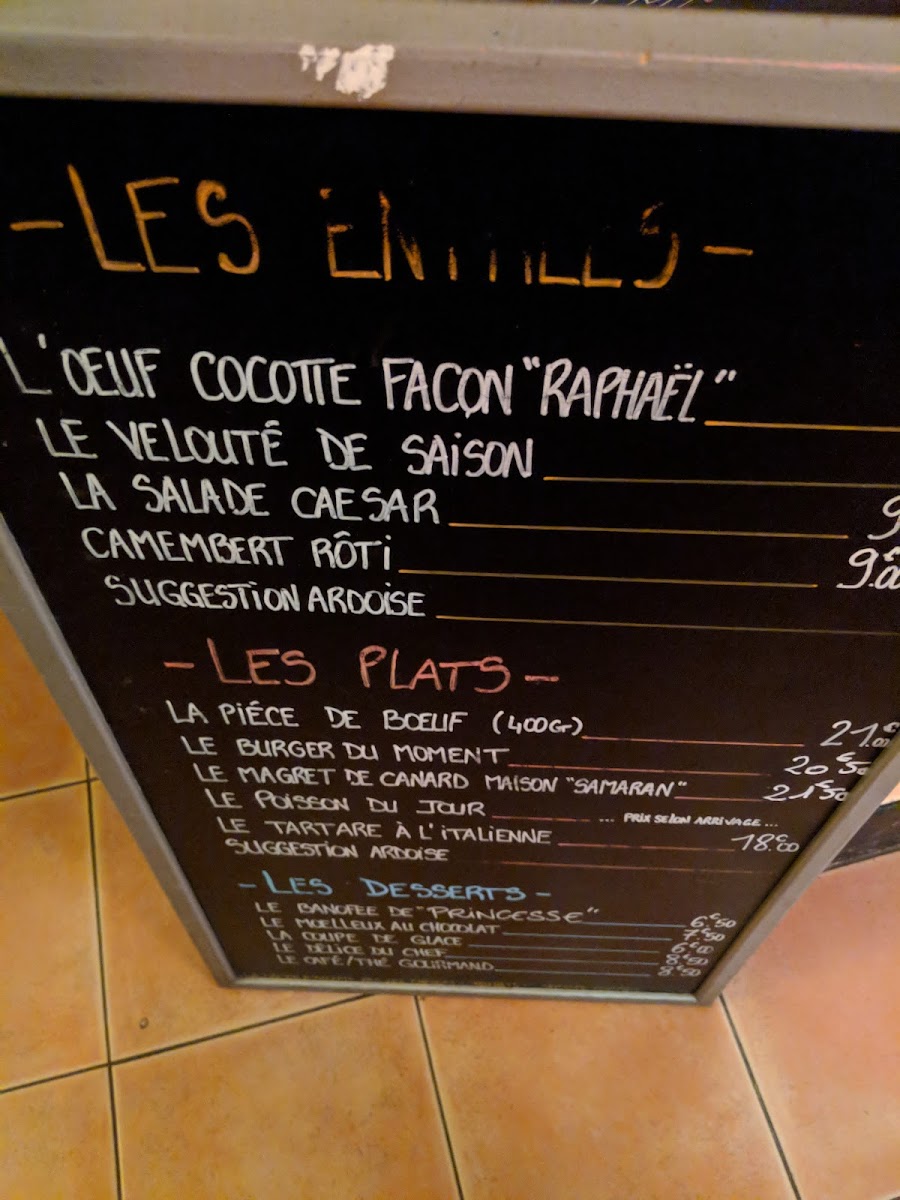 - LES ENTRÉES -
L'OEUF COCOTTE FAÇON "RAPHAËL"
LE VELOUTÉ DE SAISON
LA SALADE CAESAR 9
CAMEMBERT RÔTI 9.€00
SUGGESTION ARDOISE
- LES PLATS -
LA PIÉCE DE BOEUF (400GR) 21.€00
LE BURGER DU MOMENT 20€50
LE MAGRET DE CANARD MAISON "SAMARAN" 21€50
LE POISSON DU JOUR ... PRIX SELON ARRIVAGE ...
LE TARTARE À L'ITALIENNE 18.€00
SUGGESTION ARDOISE
- LES DESSERTS -
LE BANOFEE DE "PRINCESSE" 6€50
LE MOELLEUX AU CHOCOLAT 7€50
LA COUPE DE GLACE 6€00
LE DÉLICE DU CHEF 8€50
LE CAFÉ/THÉ GOURMAND 8€50